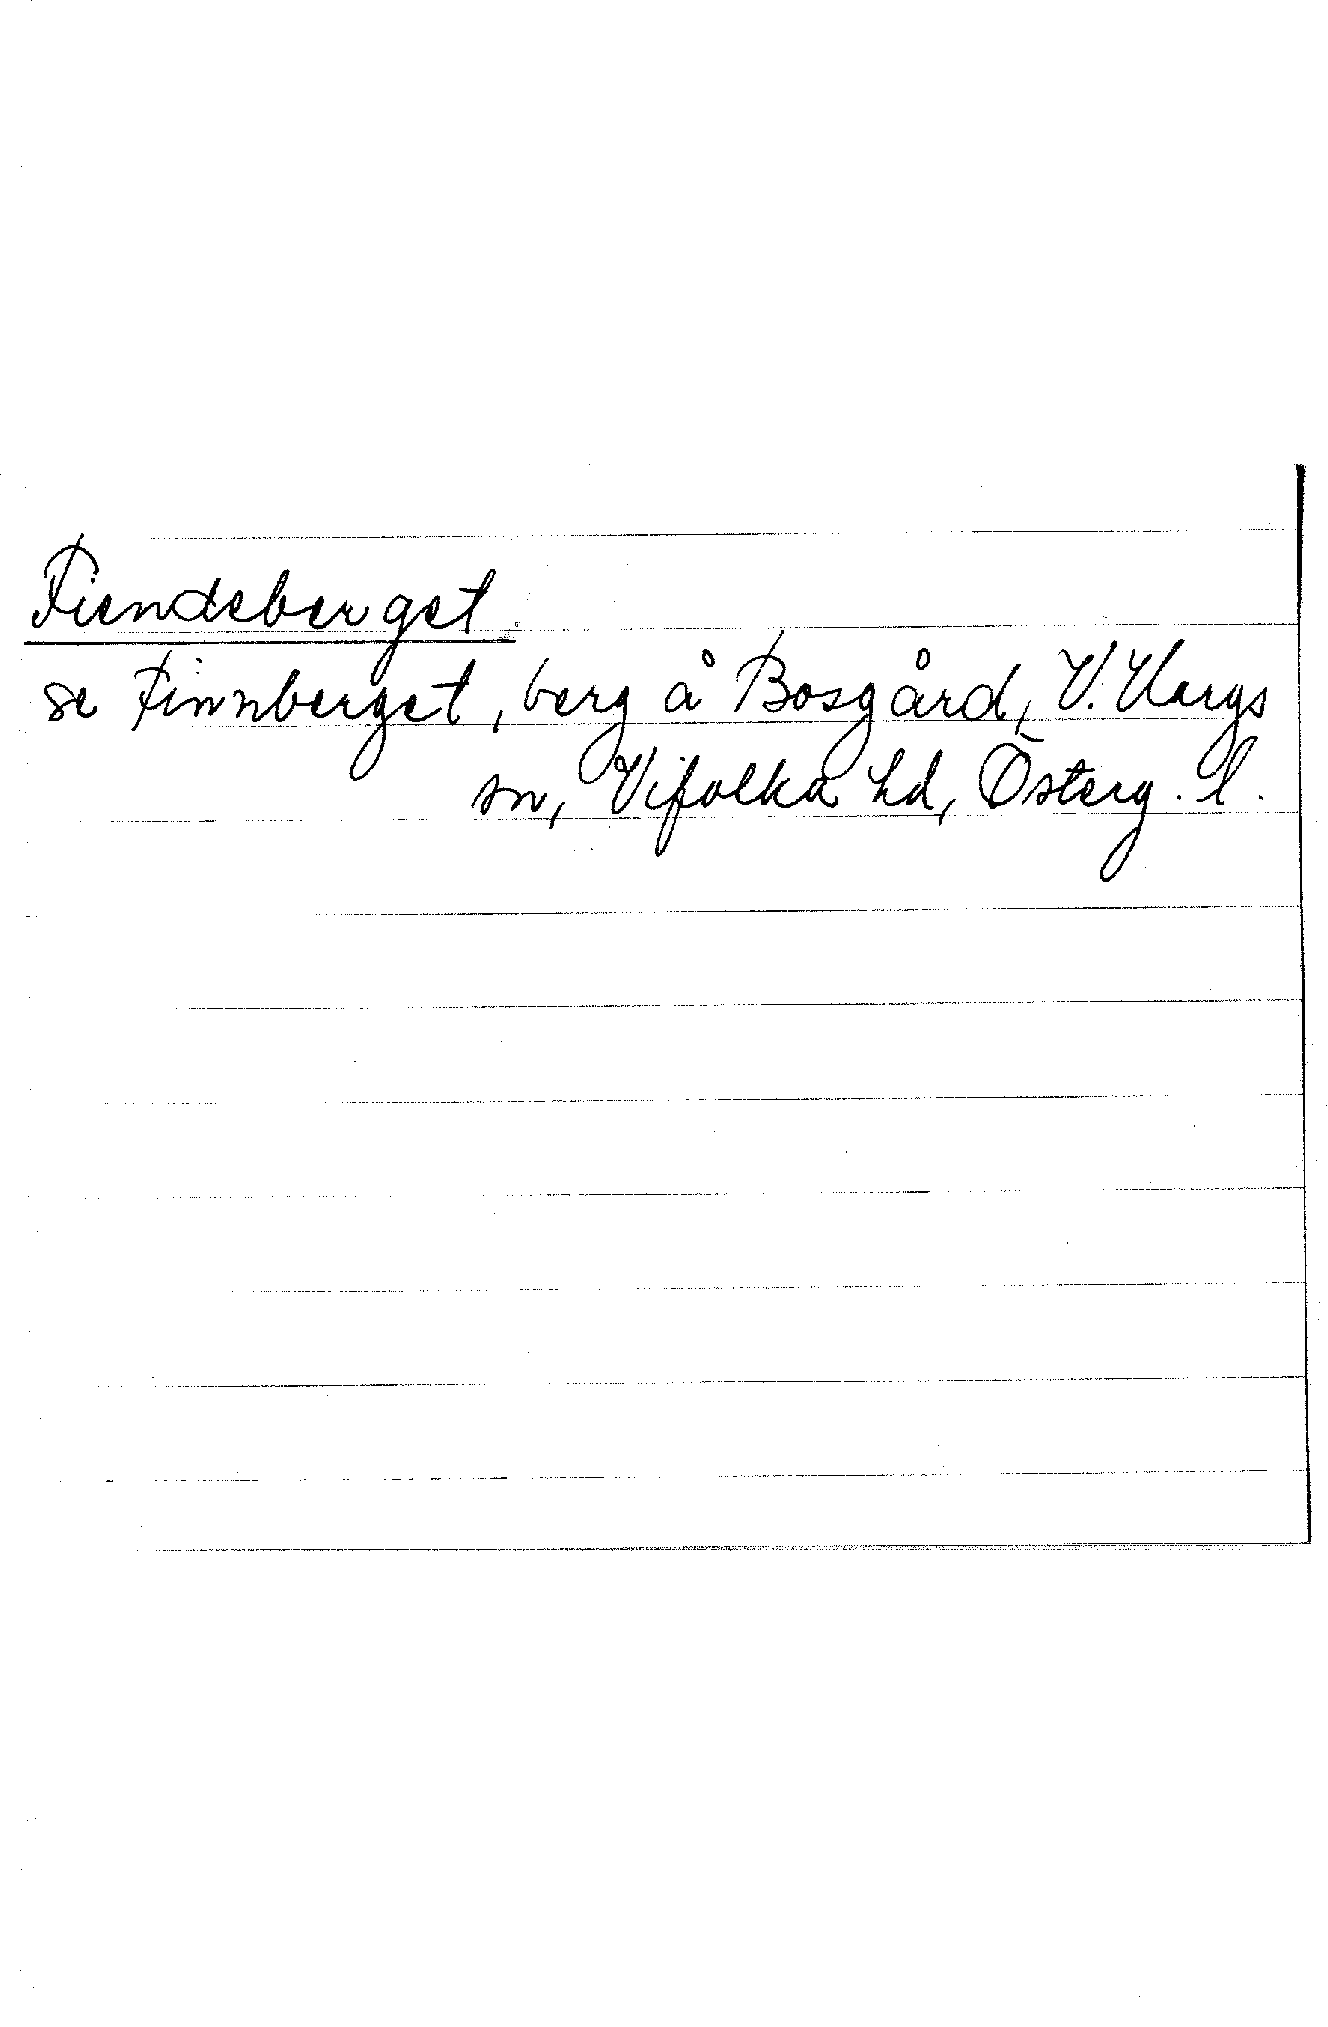 Fiendeberget
se Finnberget, berg å Bosgård, V. Hargs
sn, Vifolka hd, Österg. l.